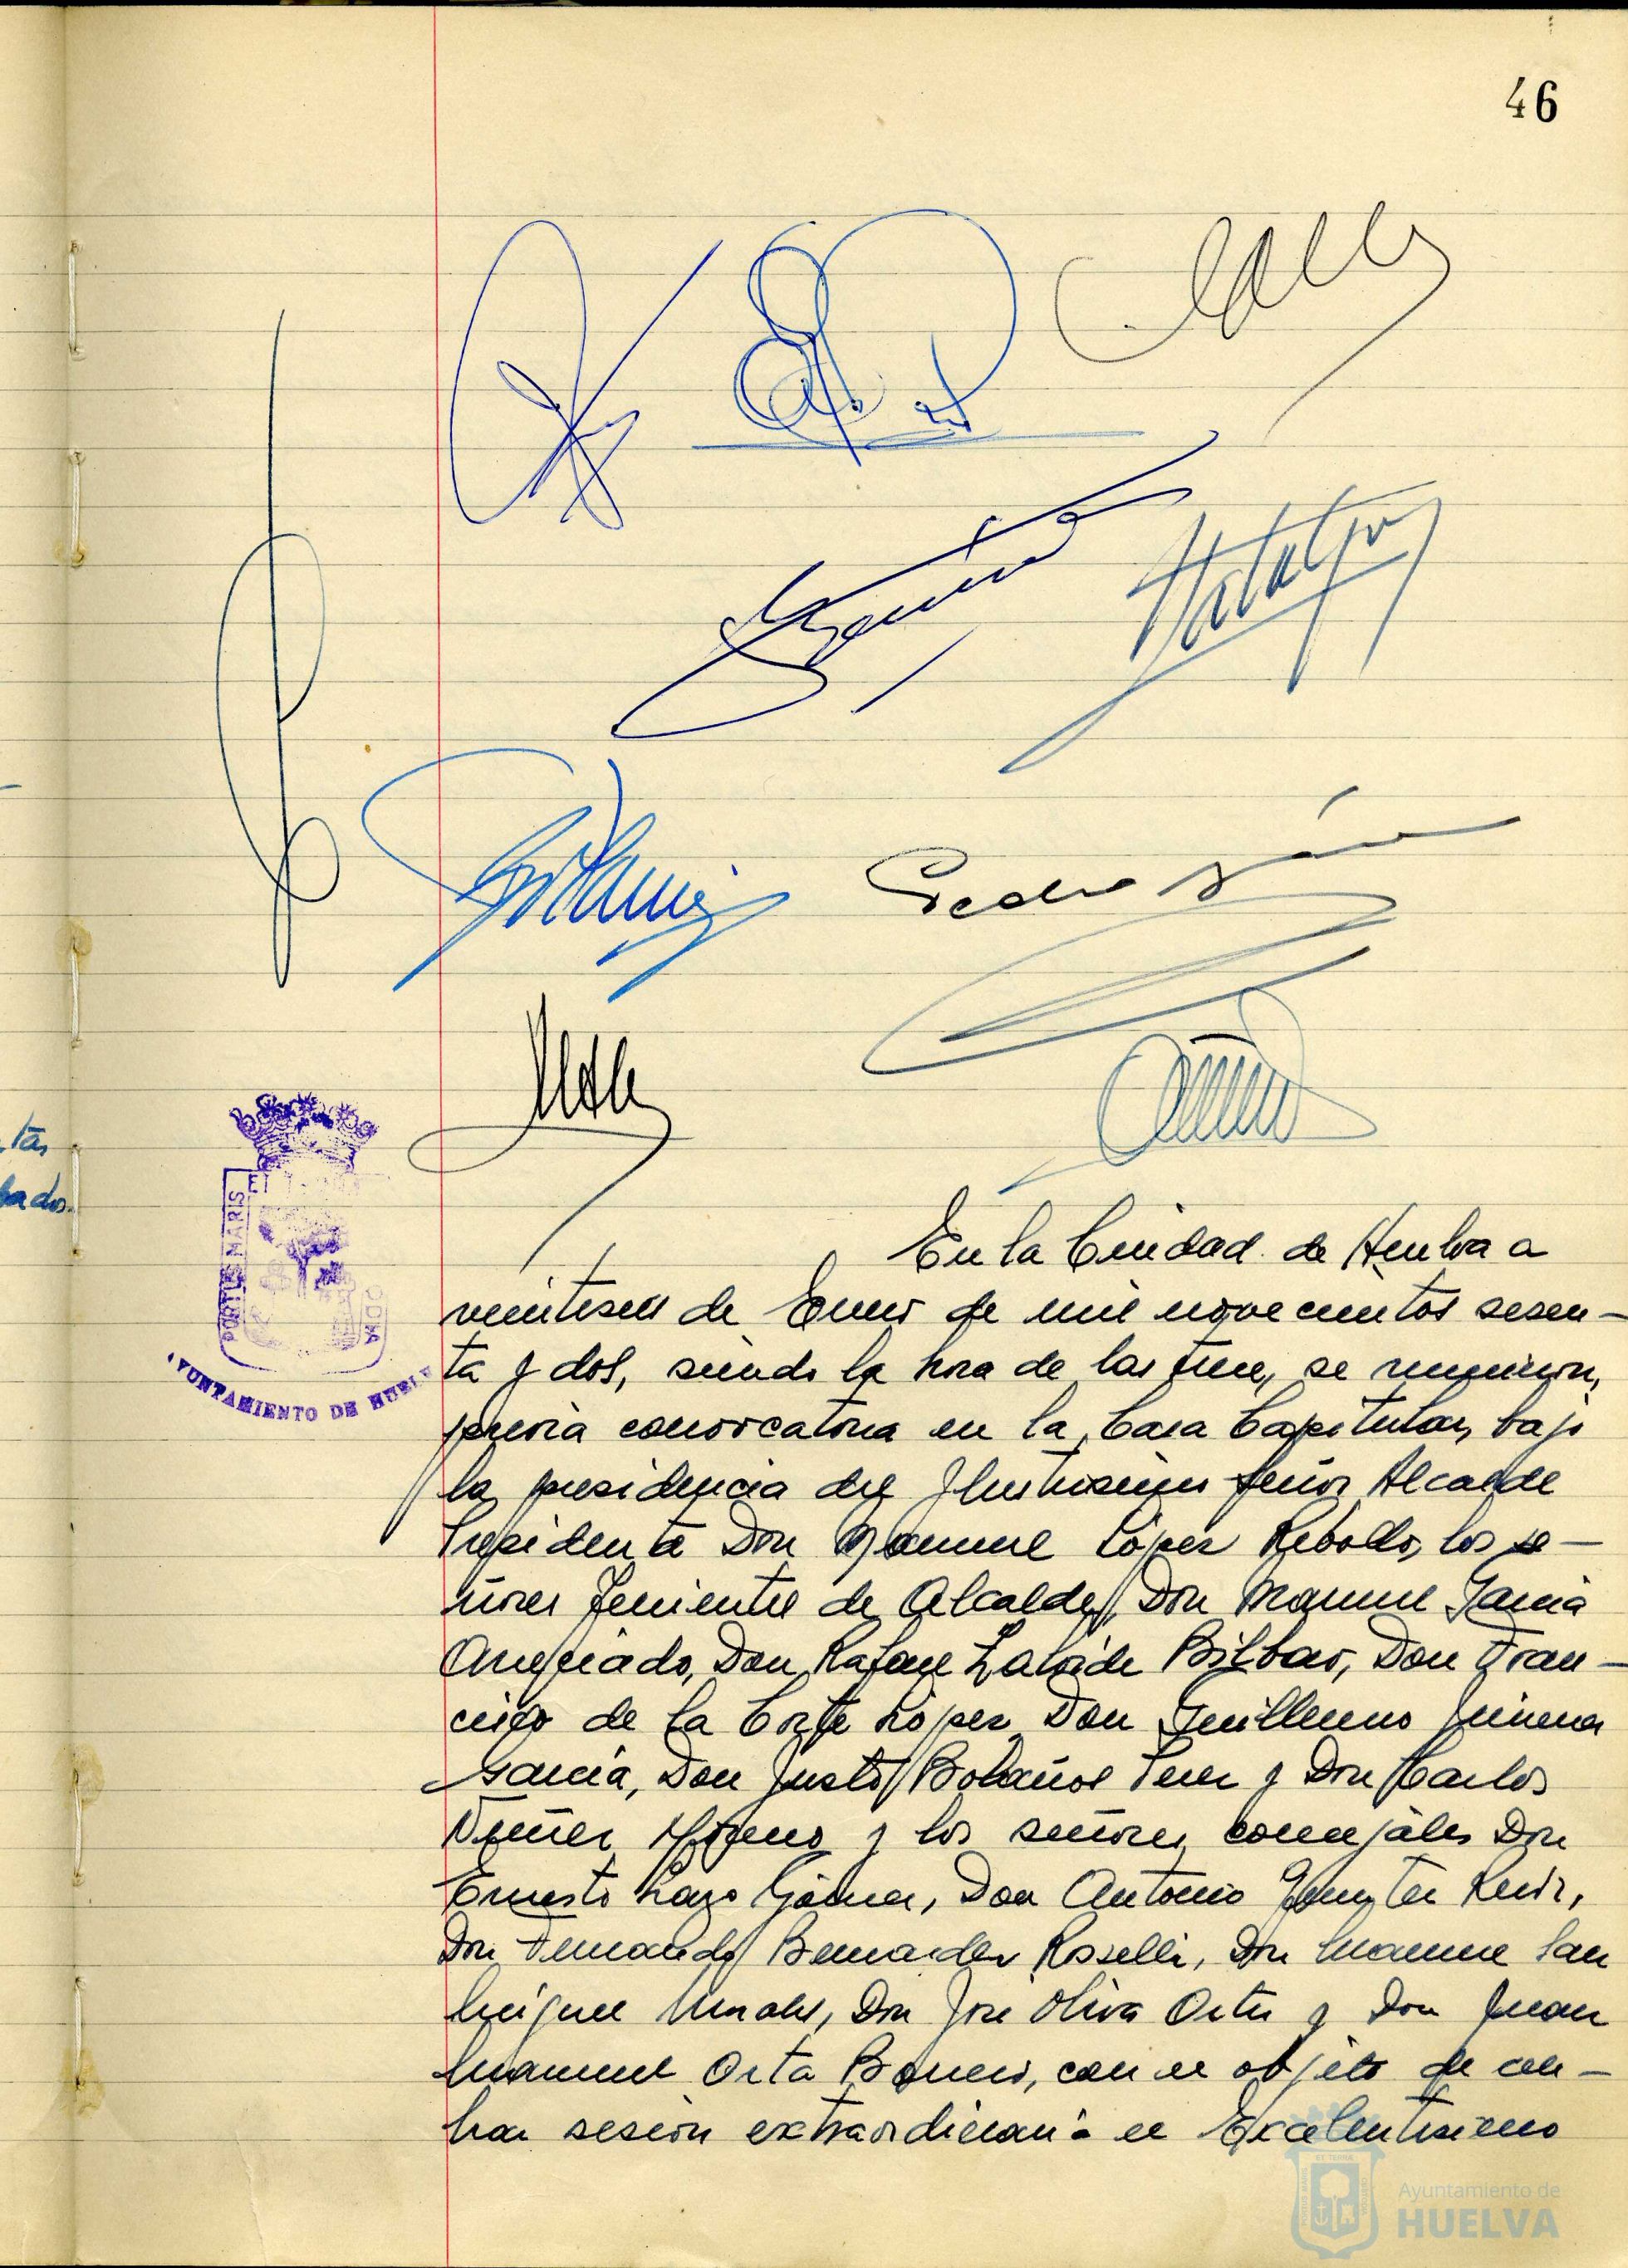 46
Pedro
tas
bados.
PORTUS MARIS ET
AYUNTAMIENTO DE HUELVA
En la Ciudad de Huelva a
veintiseis de Enero de mil novecientos sesen-
ta y dos, siendo la hora de las trece, se reunieron,
previa convocatoria en la Casa Capitular, bajo
la presidencia del Ilustrisimo Señor Alcalde
Presidente Don Manuel López Rebollo, los se-
ñores Tenientes de Alcalde, Don Manuel Garcia
Don Rafael Bilbao, Don Fran-
cisco de la Corte López Don Guillermo Jimenez
Garcia, Don Justo Bolaños Perez y Don Carlos
Nuñez Moreno y los señores concejales Don
Ernesto Lazo Gómez, Don Antonio Ruiz,
Don Fernando Bernardez Roselli, Don Manuel San
Miguel Don Jose Oliva Ortiz y Don Juan
Manuel Orta Borrero, con el objeto de cele-
brar sesión extraordinaria el Excelentisimo
Ayuntamiento de
HUELVA